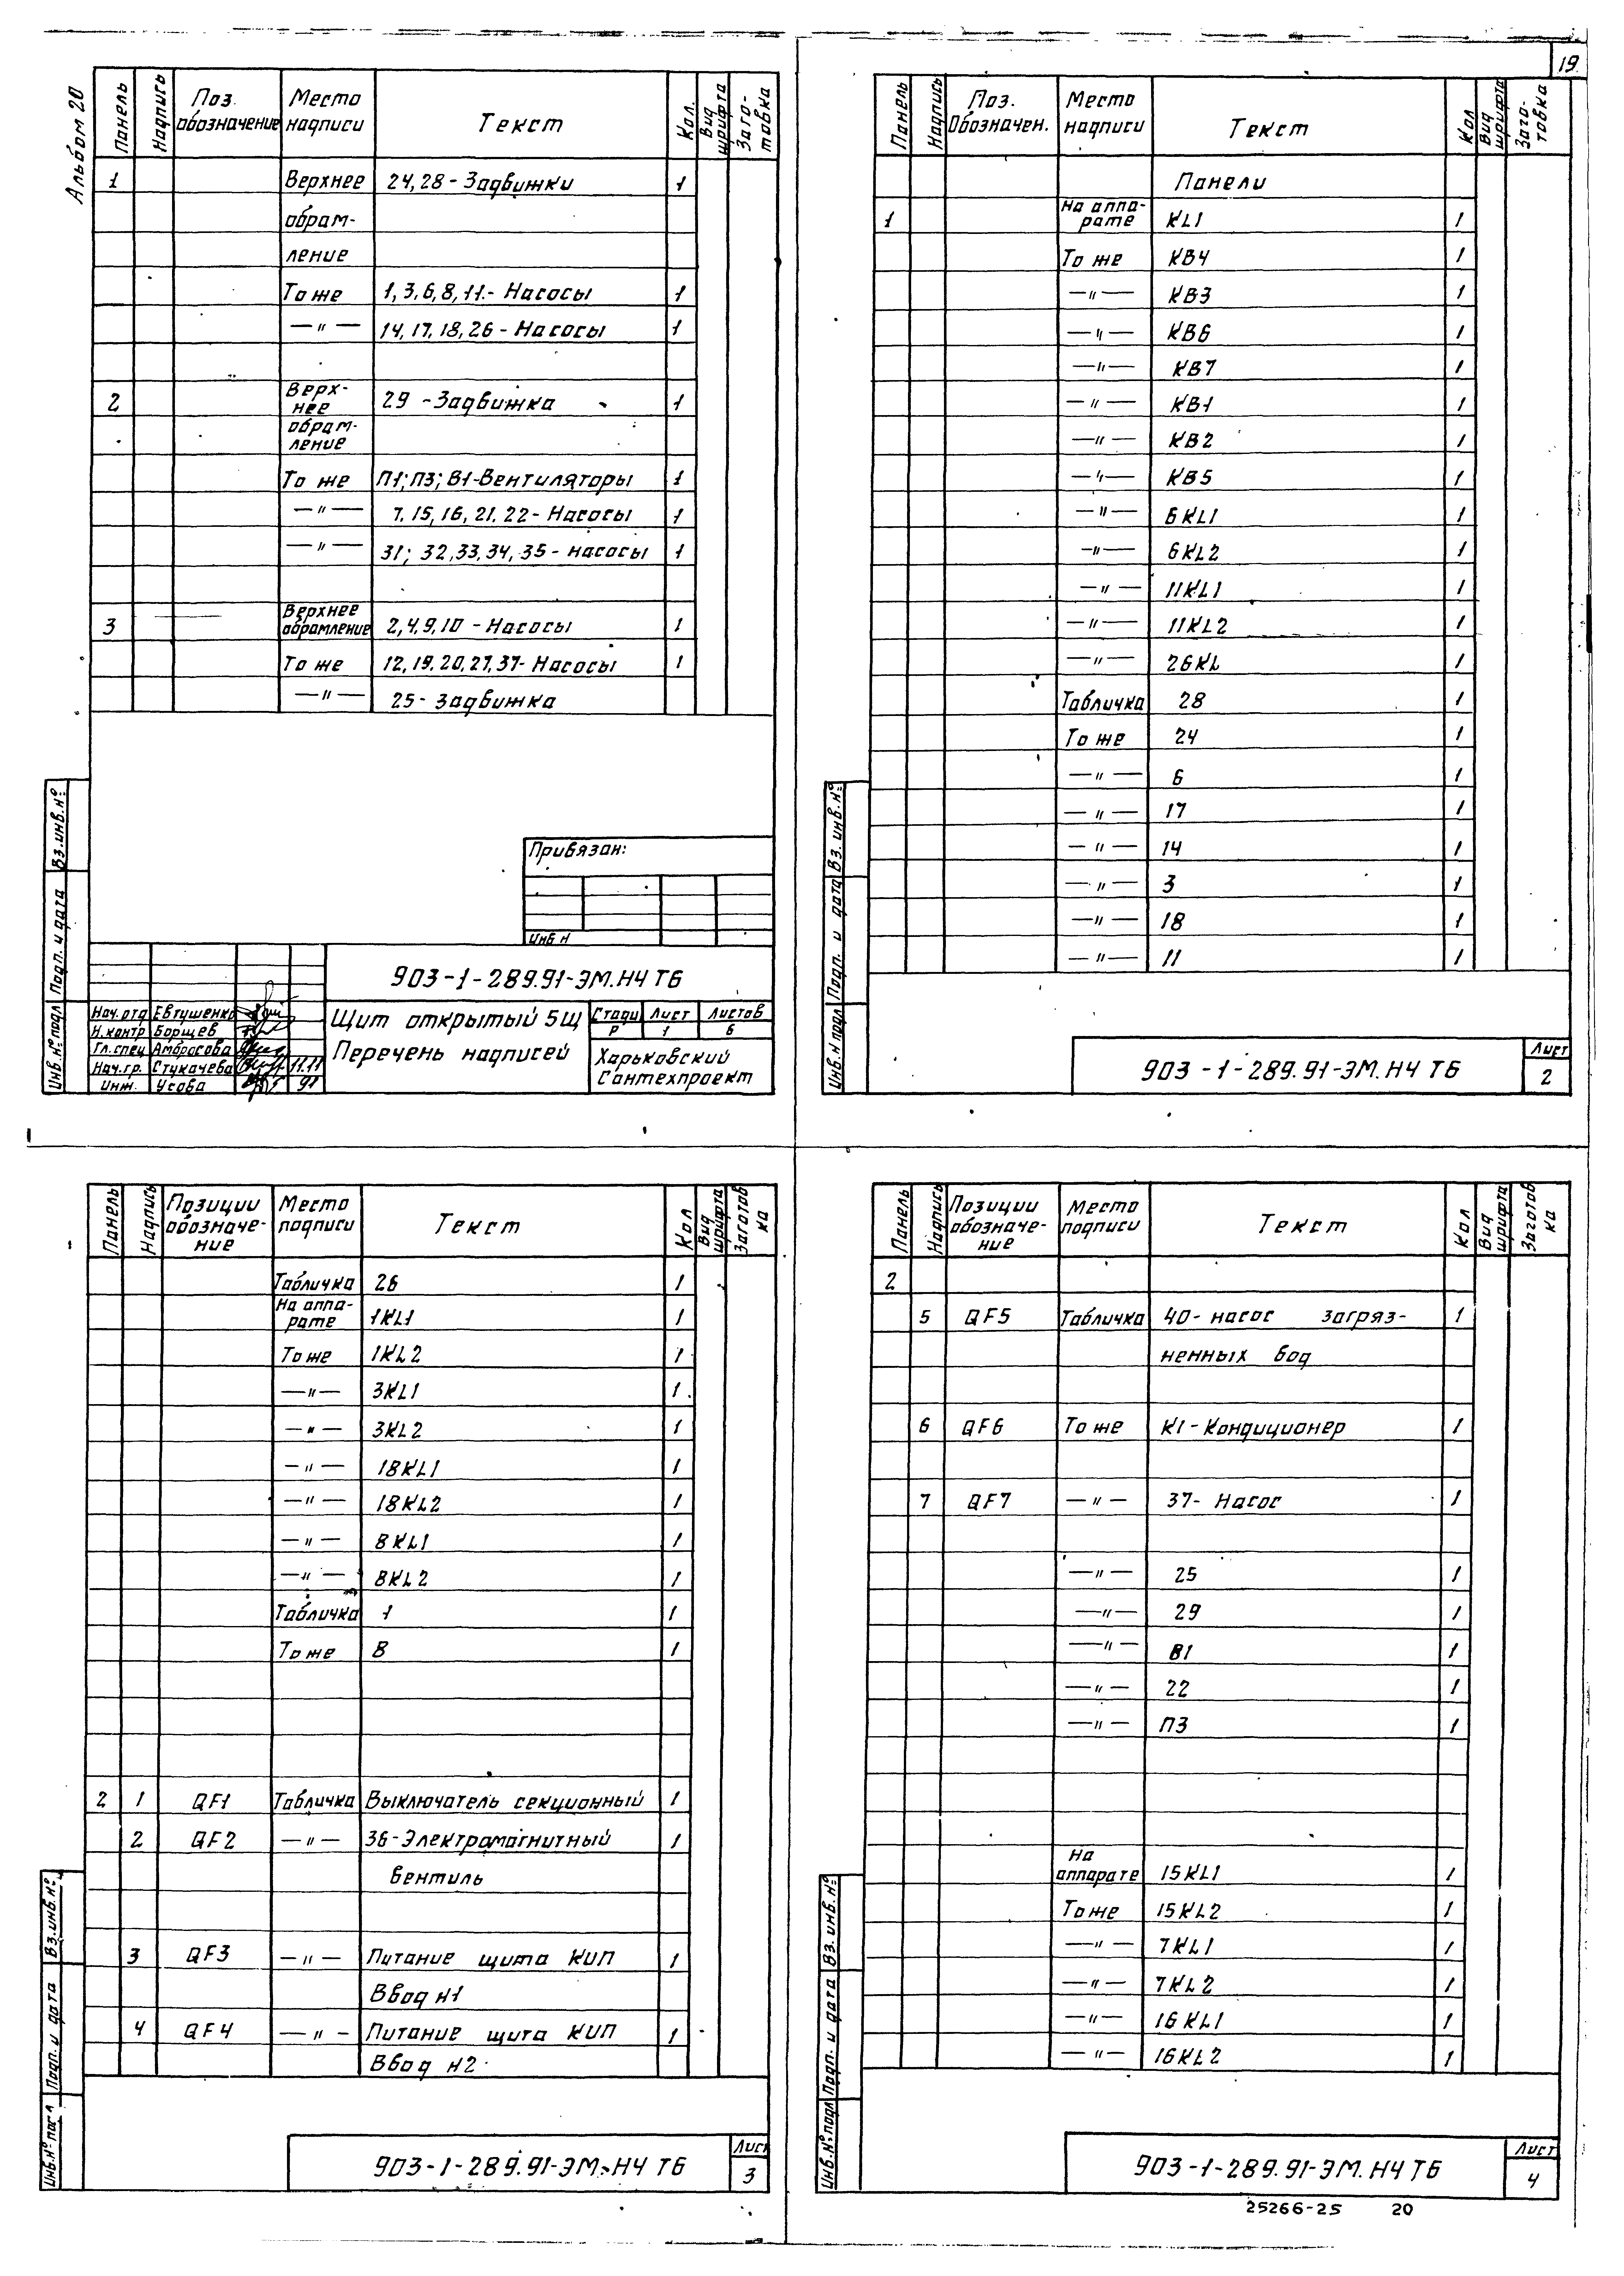 19
Альбом 20
Панель Надпись Поз. обозначение Место надписи Текст Кол. Вид шрифта Заготовка
1 Верхнее 24,28 - Задвижки 1
обрам-
ление
То же 1, 3, 6, 8, 11 - Насосы 1
—"— 14, 17, 18, 26 - Насосы 1
2 Верх- 29 - Задвижка 1
нее
обрам-
ление
То же П1; П3; В1-Вентиляторы 1
—"— 7, 15, 16, 21, 22 - Насосы 1
—"— 31; 32, 33, 34, 35 - насосы 1
3 Верхнее обрамление 2, 4, 9, 10 - Насосы 1
То же 12, 19, 20, 27, 37- Насосы 1
—"— 25 - задвижка
Привязан:
Инв Н
903-1-289.91-ЭМ.Н4 ТБ
Нач. отд Евтушенко
Н. контр Борщев
Гл. спец Амбросова
Нач. гр. Стукачева 11.11
Инж. Усова 91
Щит открытый 5Щ
Перечень надписей
Стади Лист Листов
Р 1 6
Харьковский
Сантехпроект
Инв.№ подл Подп. и дата Вз. инв. №
Панель Надпись Поз. Обозначен. Место надписи Текст Кол Вид шрифта Заго-товка
Панели
1 На аппа-рате KL1 1
То же КВ4 1
—"— КВ3 1
—"— КВ6 1
—"— КВ7 1
—"— КВ1 1
—"— КВ2 1
—"— КВ5 1
—"— 6KL1 1
—"— 6KL2 1
—"— 11KL1 1
—"— 11KL2 1
—"— 26KL 1
Табличка 28 1
То же 24 1
—"— 6 1
—"— 17 1
—"— 14 1
—"— 3 1
—"— 18 1
—"— 11 1
Инв. Н подл Подп. и дата Вз. инв. №
903-1-289.91-ЭМ.Н4 ТБ
Лист
2
Панель Надпись Позиции обозначе-ние Место подписи Текст Кол Вид шрифта Заготов ка
Табличка 26 1
На аппа-рате 1KL1 1
То же 1KL2 1
—"— 3KL1 1
—"— 3KL2 1
—"— 18KL1 1
—"— 18KL2 1
—"— 8KL1 1
—"— 8KL2 1
Табличка 1 1
То же 8 1
2 1 QF1 Табличка Выключатель секционный 1
2 QF2 —"— 36-Электромагнитный 1
вентиль
3 QF3 —"— Питание щита КИП 1
Ввод н1
4 QF4 —"— Питание щита КИП 1
Ввод н2
Инв.№ подл Подп. и дата Вз. инв. №
903-1-289.91-ЭМ.Н4 ТБ
Лист
3
Панель Надпись Позиции обозначе-ние Место подписи Текст Кол Вид шрифта Заготов ка
2
5 QF5 Табличка 40- насос загряз- 1
ненных вод
6 QF6 То же К1 - Кондиционер 1
7 QF7 —"— 37- Насос 1
—"— 25 1
—"— 29 1
—"— В1 1
—"— 22 1
—"— П3 1
На аппарате 15KL1 1
То же 15KL2 1
—"— 7KL1 1
—"— 7KL2 1
—"— 16KL1 1
—"— 16KL2 1
Инв.№ подл Подп. и дата Вз. инв. №
903-1-289.91-ЭМ.Н4 ТБ
Лист
4
25266-25 20